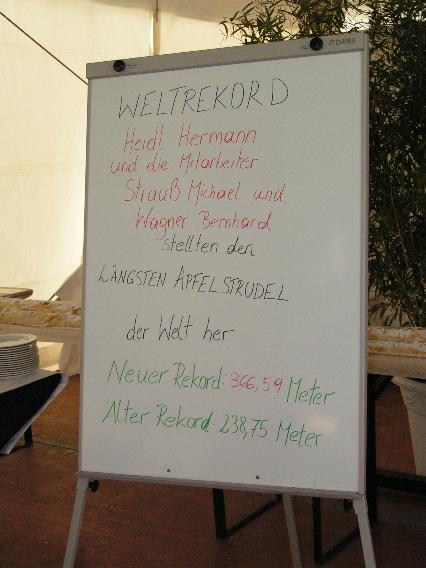 WELTREKORD
Heidl Hermann
und die Mitarbeiter
Strauß Michael und
Wagner Bernhard
stellten den
LÄNGSTEN APFELSTRUDEL
der Welt her
Neuer Rekord: 366,59 Meter
Alter Rekord: 238,75 Meter